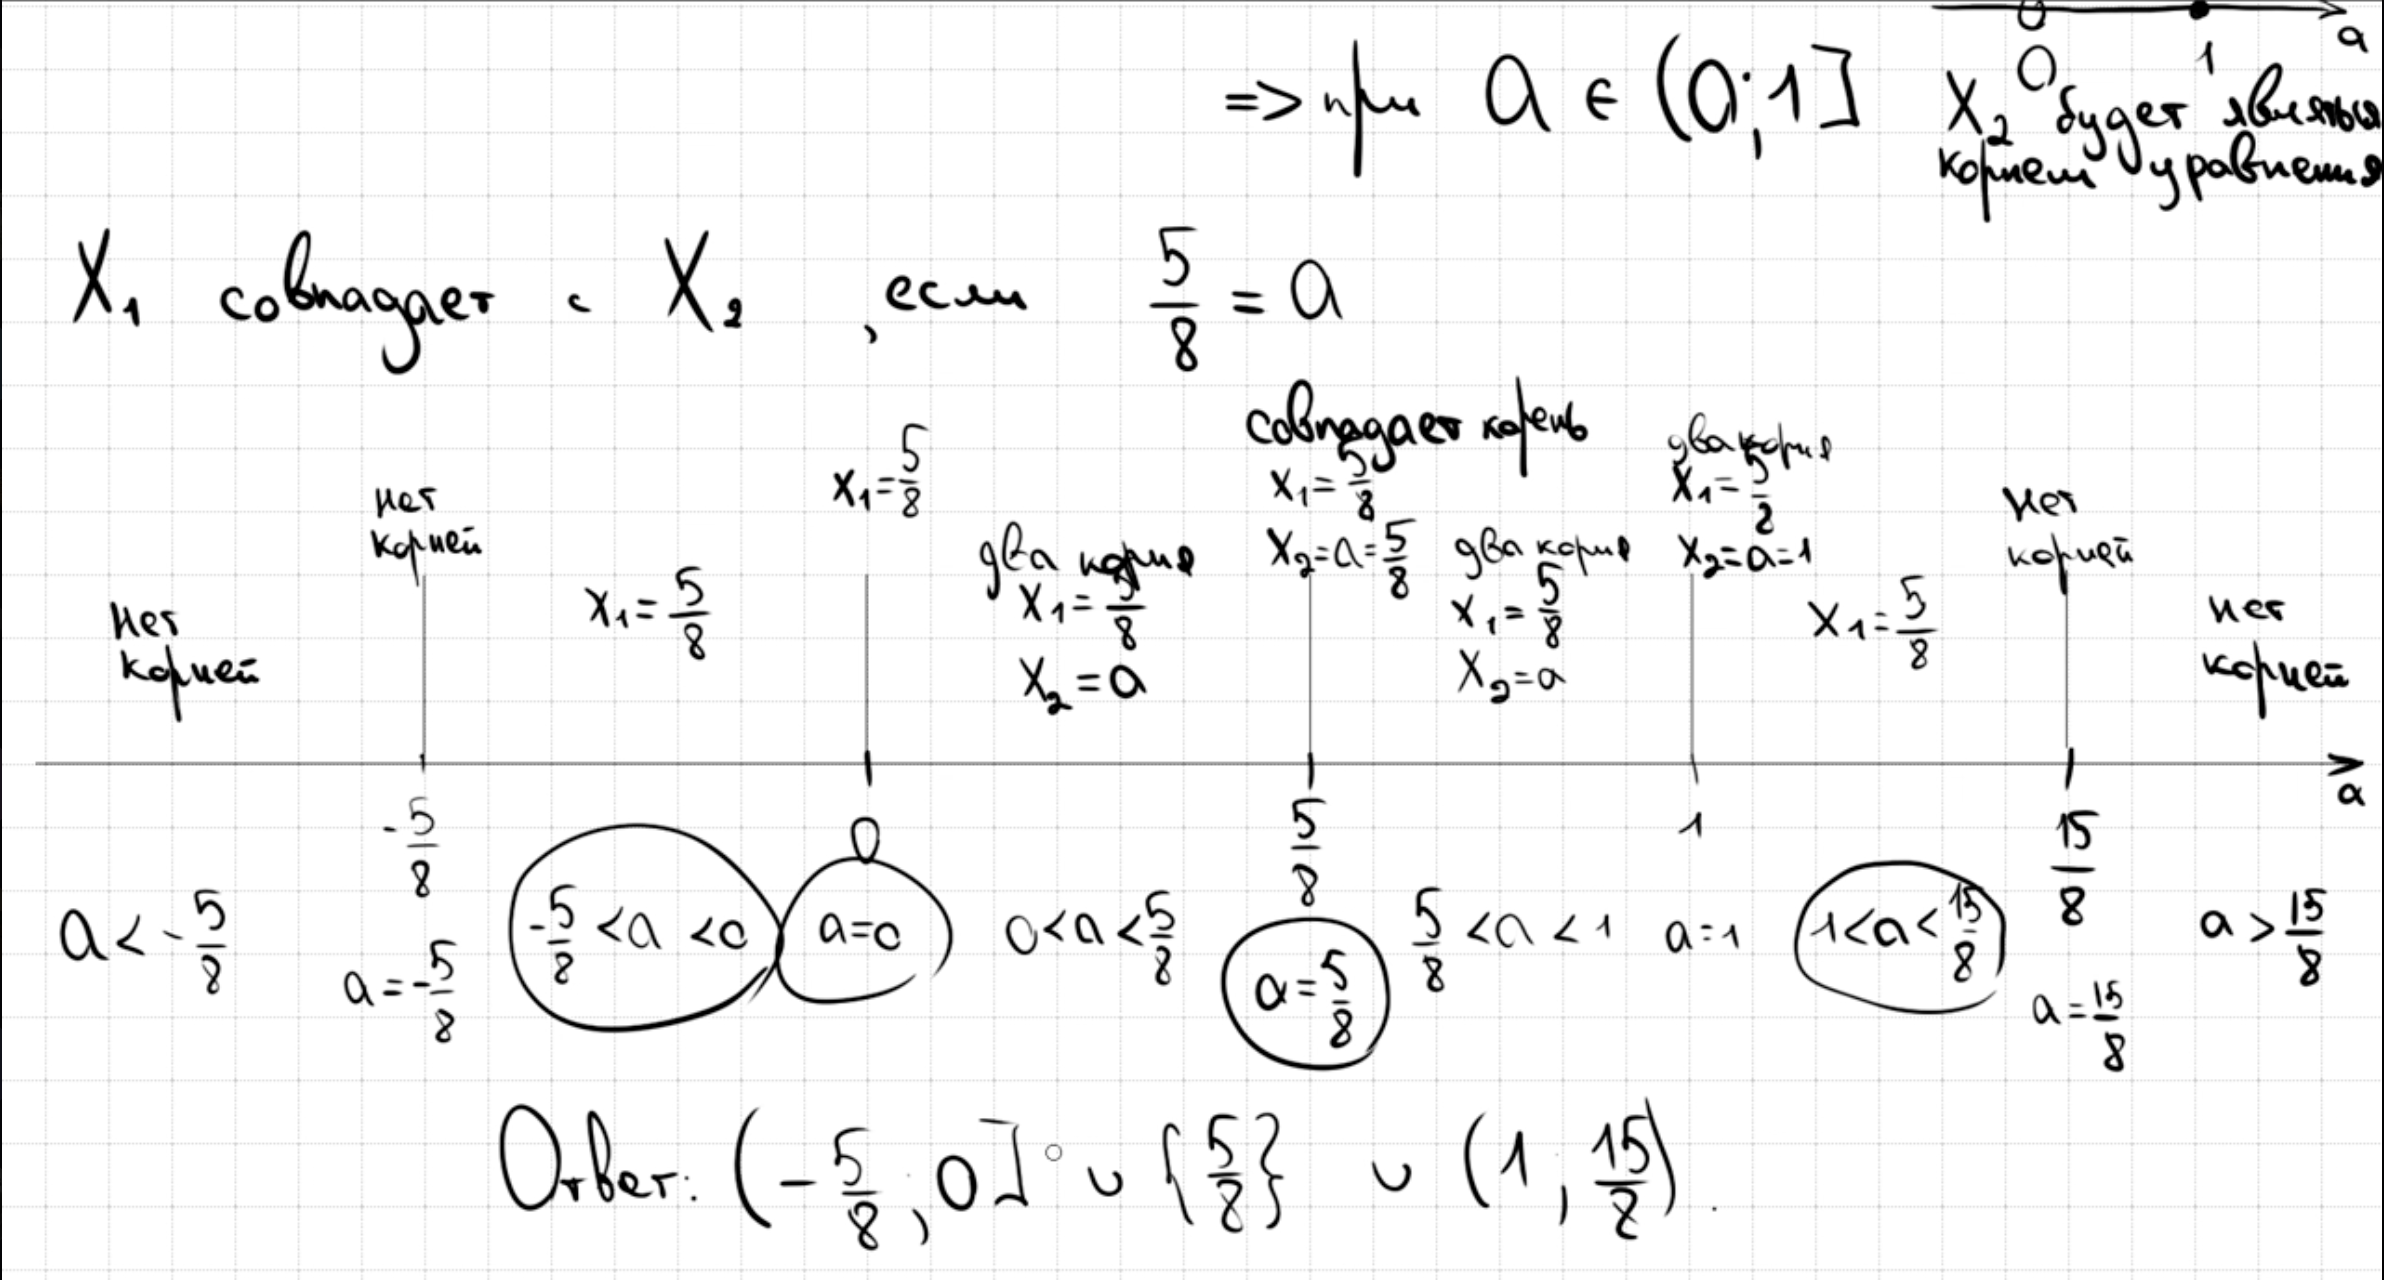 0 1 a
=> при a ∈ (0;1] X₂ будет являться
корнем уравнения
X₁ совпадает с X₂, если 5/8 = a
нет
корней
нет
корней
x₁ = 5/8
x₁ = 5/8
два корня
x₁ = 5/8
x₂ = a
совпадает корень
x₁ = 5/8
x₂ = a = 5/8
два корня
x₁ = 5/8
x₂ = a
два корня
x₁ = 5/8
x₂ = a = 1
x₁ = 5/8
нет
корней
нет
корней
-5/8 0 5/8 1 15/8 a
a < -5/8 a = -5/8 -5/8 < a < 0 a = 0 0 < a < 5/8 a = 5/8 5/8 < a < 1 a = 1 1 < a < 15/8 a = 15/8 a > 15/8
Ответ: (-5/8; 0] ∪ {5/8} ∪ (1; 15/8).